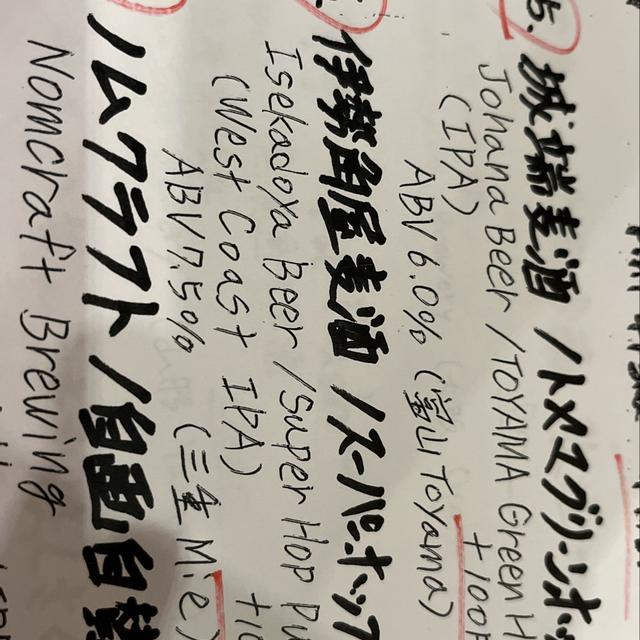 5. 城端麦酒 / トヤマグリーンホッ
Johana Beer / TOYAMA Green H
(IPA) +100
ABV 6.0% (富山 Toyama)
伊勢角屋麦酒 / スーパーホップ
Isekadoya Beer / Super Hop Pu
(West Coast IPA) +10
ABV 7.5% (三重 Mie)
ノムクラフト / 自画自
Nomcraft Brewing